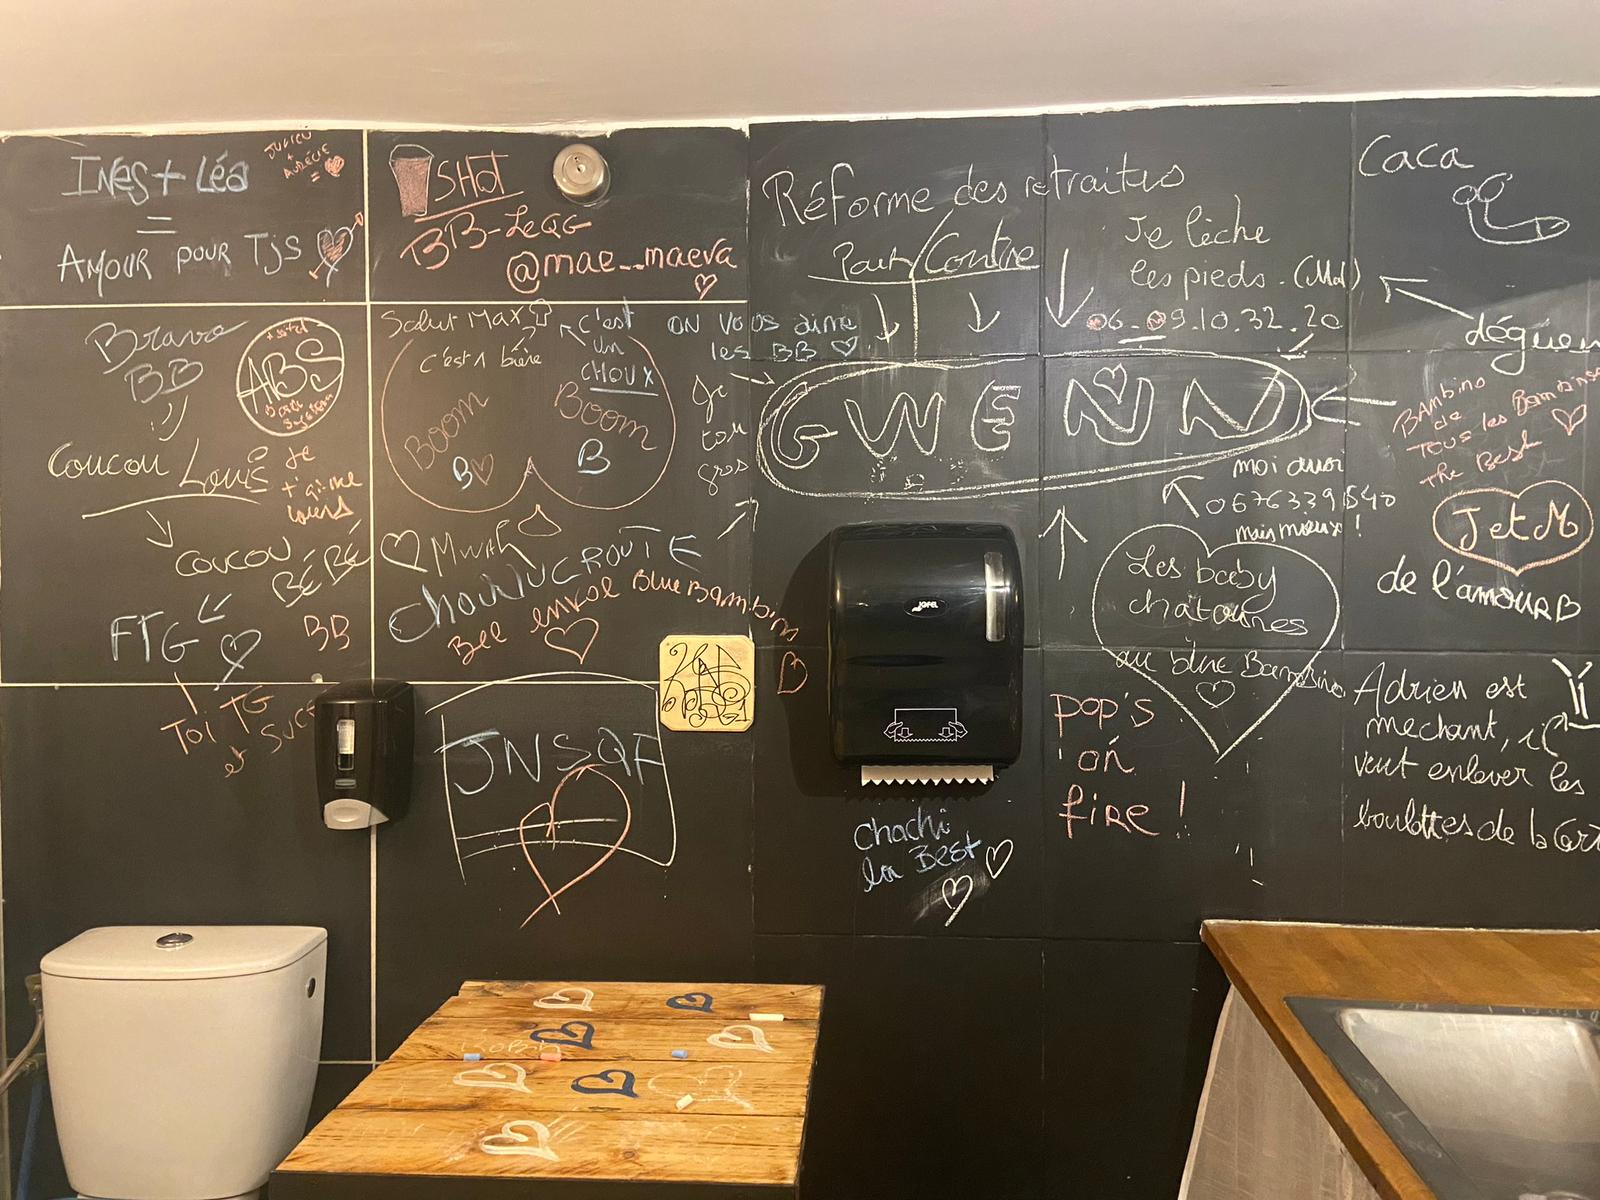 Ines + Léa
=
Amour pour Tjs
+
=
SHOT
BB-LeQG
@mae_maeva
Réforme des retraites
Pour/Contre
Je lèche
les pieds.
06_09.10.32.20
Caca
Bravo
BB
ABS
Coucou Louis
Je
t'aime
Coucou
BÉBÉ
FTG
BB
Toi TG
et
Salut Max
c'est 1 bière
c'est
un
CHOUX
BOOM
BOOM
B
B
ON VOUS aime
les BB
Je
gros
GWENN
moi aussi
mais mieux !
Bambino
de
Tous les Bambinos
The Best
JetM
de l'amour
Mwah
CHOUCROUTE
Blue Bambino
Les baby
chatounes
au blue Bambino
JNSQP
JOFEL
pop's
on
fire !
Chachi
la Best
Adrien est
mechant, il
veut enlever les
boulettes de la